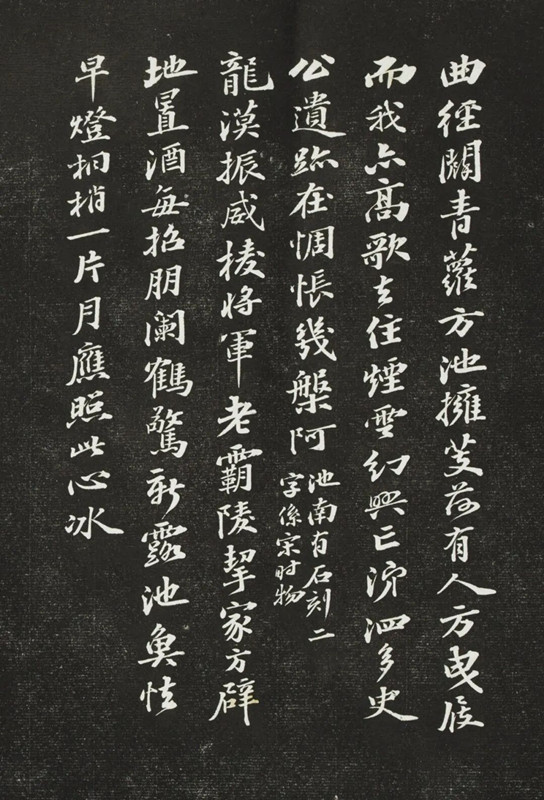 曲徑闢青蘿方池擁芰荷有人方曳履
而我亦高歌去住煙雲幻興亡涕泗多史
公遺跡在惆悵幾槃阿
池南有石刻二
字係宋时物
龍漠振威棱將軍老霸陵挈家方辟
地置酒每招朋闌鶴驚新露池魚怯
早燈桐梢一片月應照此心冰